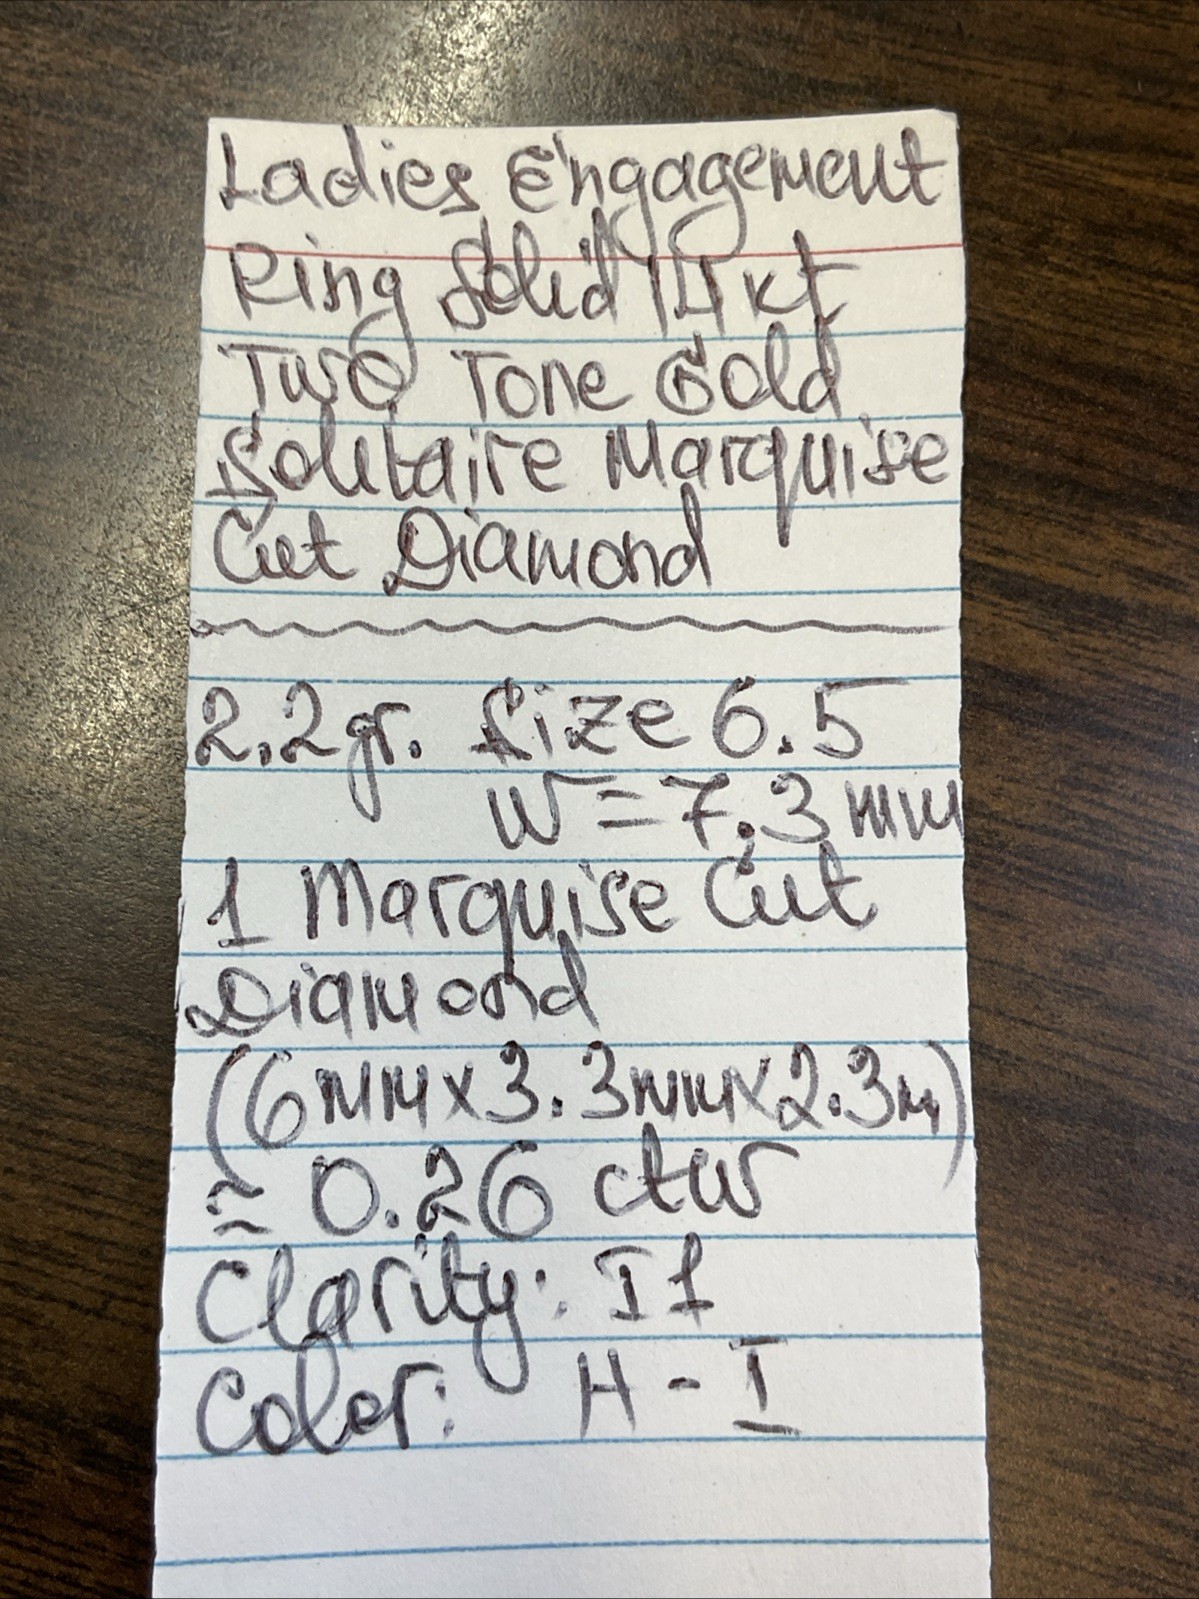 Ladies Engagement
Ring Solid 14kt
Two Tone Gold
Solitaire Marquise
Cut Diamond
2.2gr. Size 6.5
W=7.3mm
1 Marquise Cut
Diamond
(6mmx3.3mmx2.3m)
≈ 0.26 ctw
Clarity: I1
Color: H-I